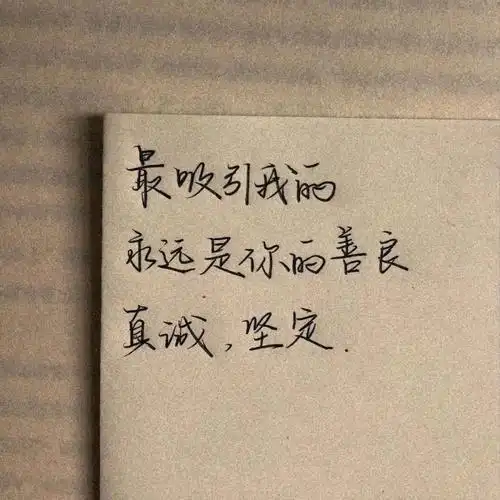 最吸引我的
永远是你的善良
真诚，坚定.